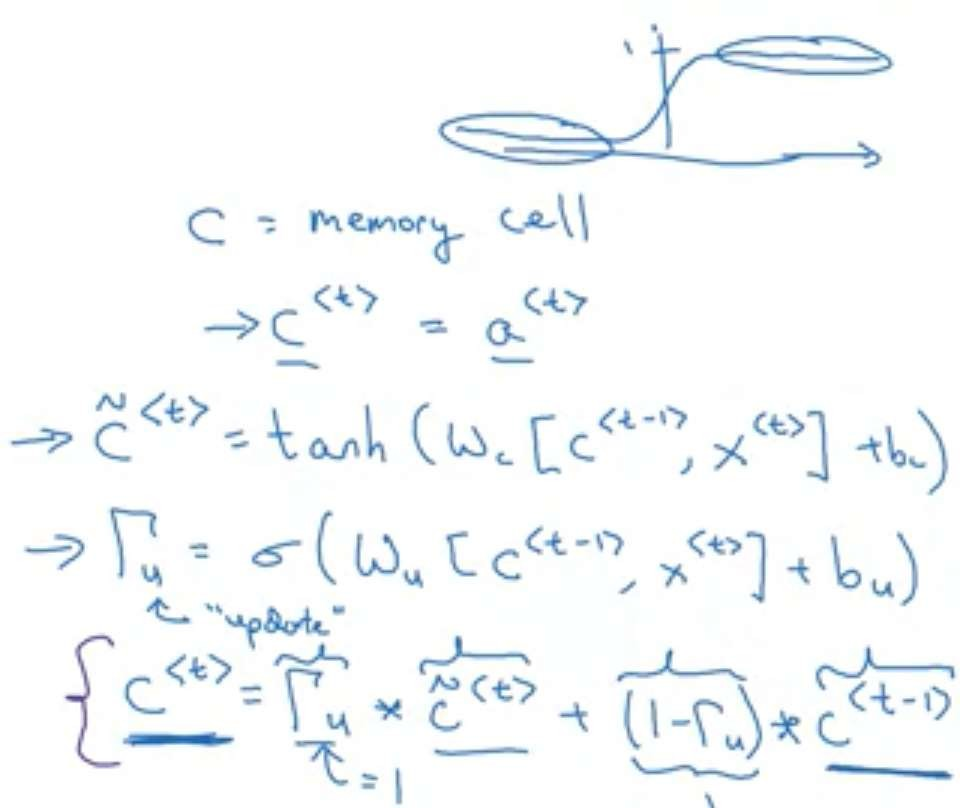 1
C = memory cell
→ C^{<t>} = a^{<t>}
→ C̃^{<t>} = tanh (W_c [C^{<t-1>}, x^{<t>}] + b_c)
→ Γ_u = σ(W_u [C^{<t-1>}, x^{<t>}] + b_u)
↖ "update"
C^{<t>} = Γ_u * C̃^{<t>} + (1-Γ_u) * C^{<t-1>}
↖ = 1